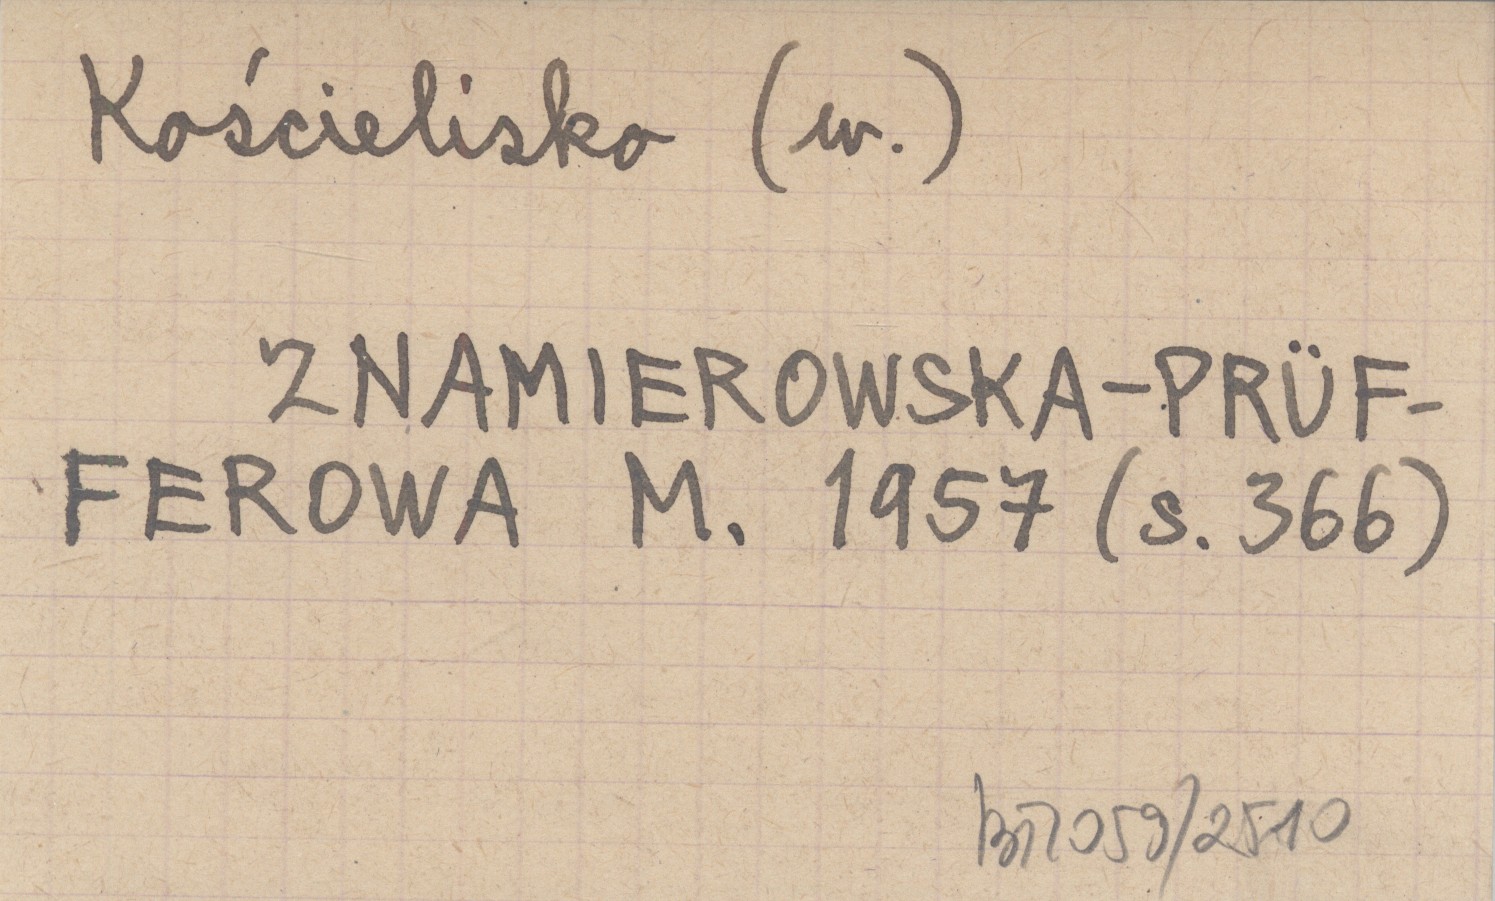 Kościelisko (w.)
ZNAMIEROWSKA-PRÜF-
FEROWA M. 1957 (s. 366)